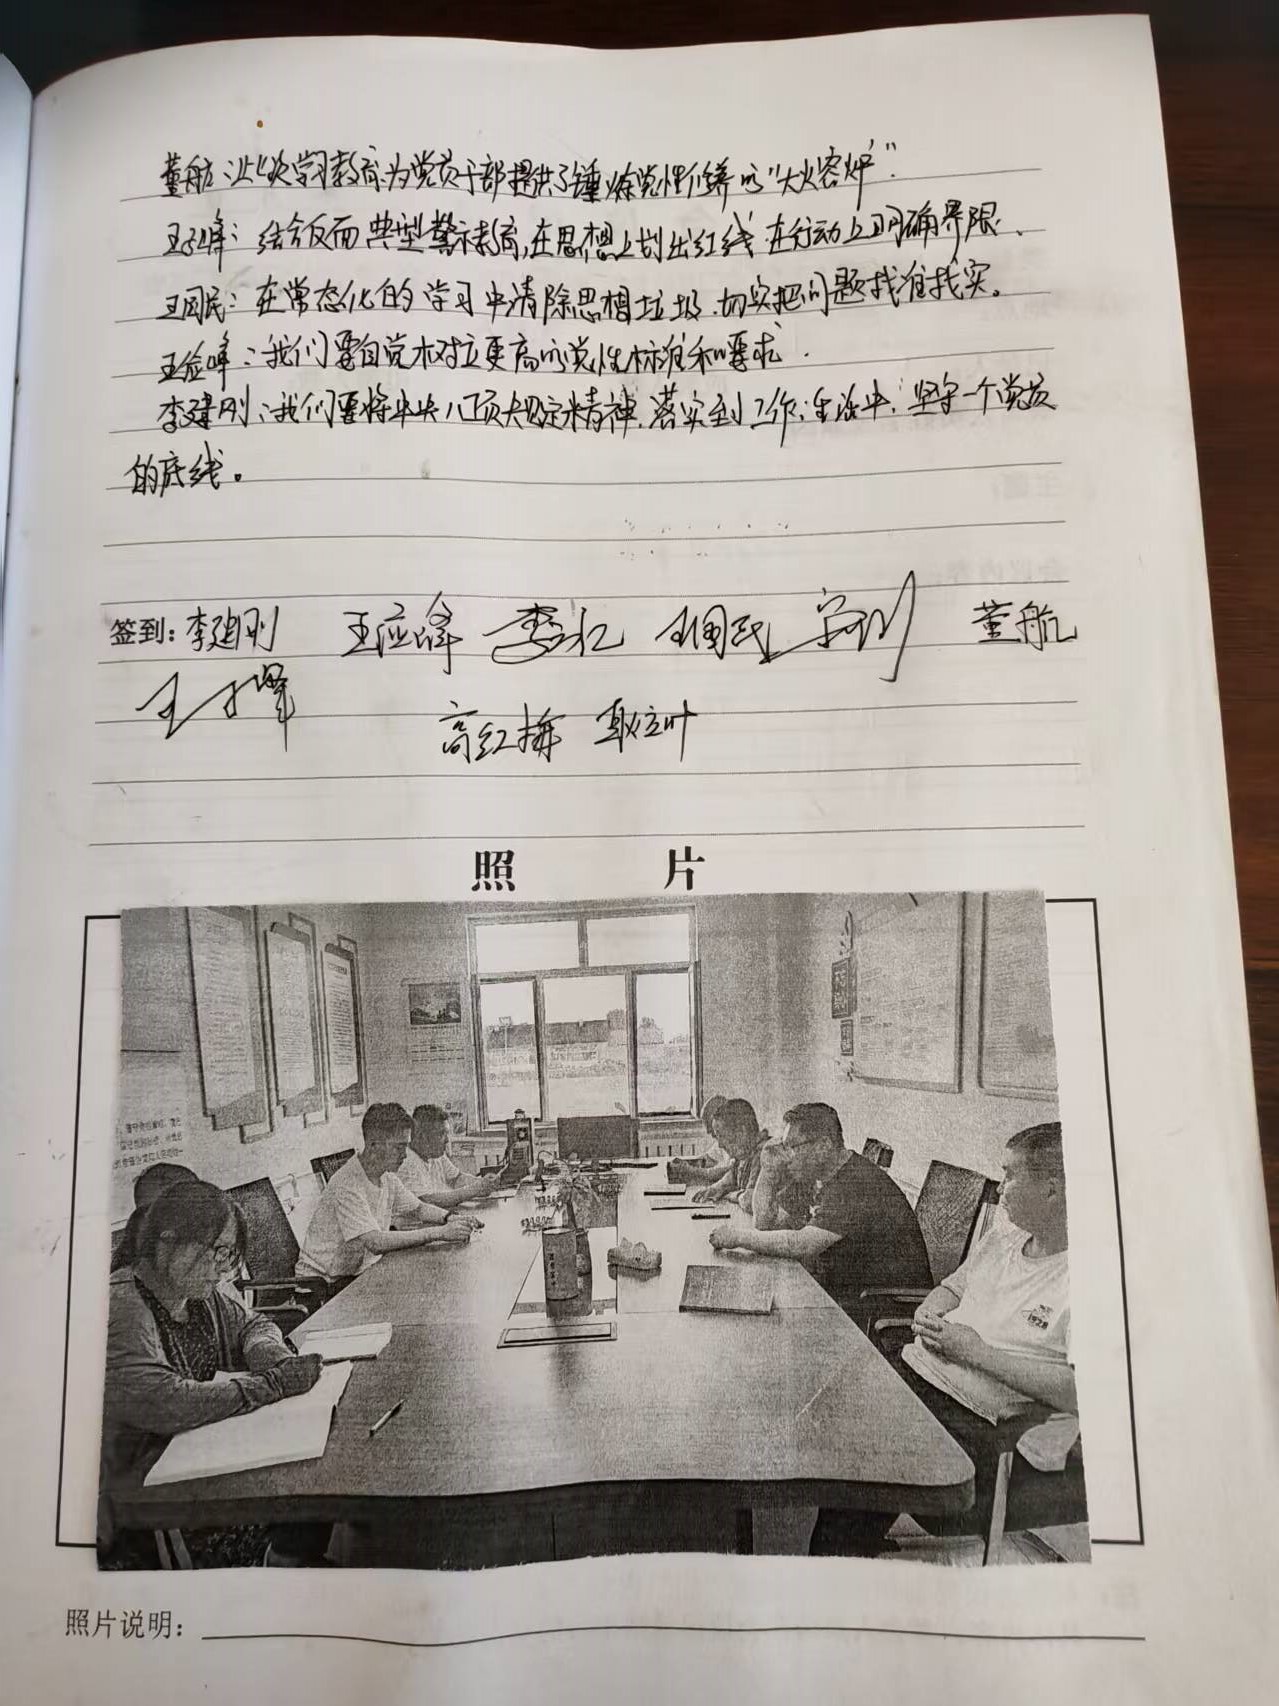 董航：此次学习教育为党员干部提供了锤炼党性修养的“大火容炉”.
王峰：结合反面典型警示教育,在思想上划出红线 在行动上明确界限.
王国民：在常态化的学习中清除思想垃圾.切实把问题找准找实。
王应峰：我们要自觉树立更高的党性标准和要求.
李建刚：我们要将中央八项规定精神.落实到工作.生活中.坚守一个党员
的底线。
签到：李建刚 王应峰 王国民 董航
高红梅 耿立叶
照 片
1928
照片说明：